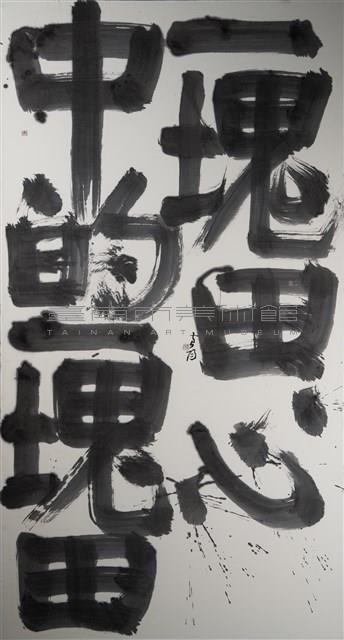 一塊田心
中的一塊田
臺南市美術館
TAINAN ART MUSEUM